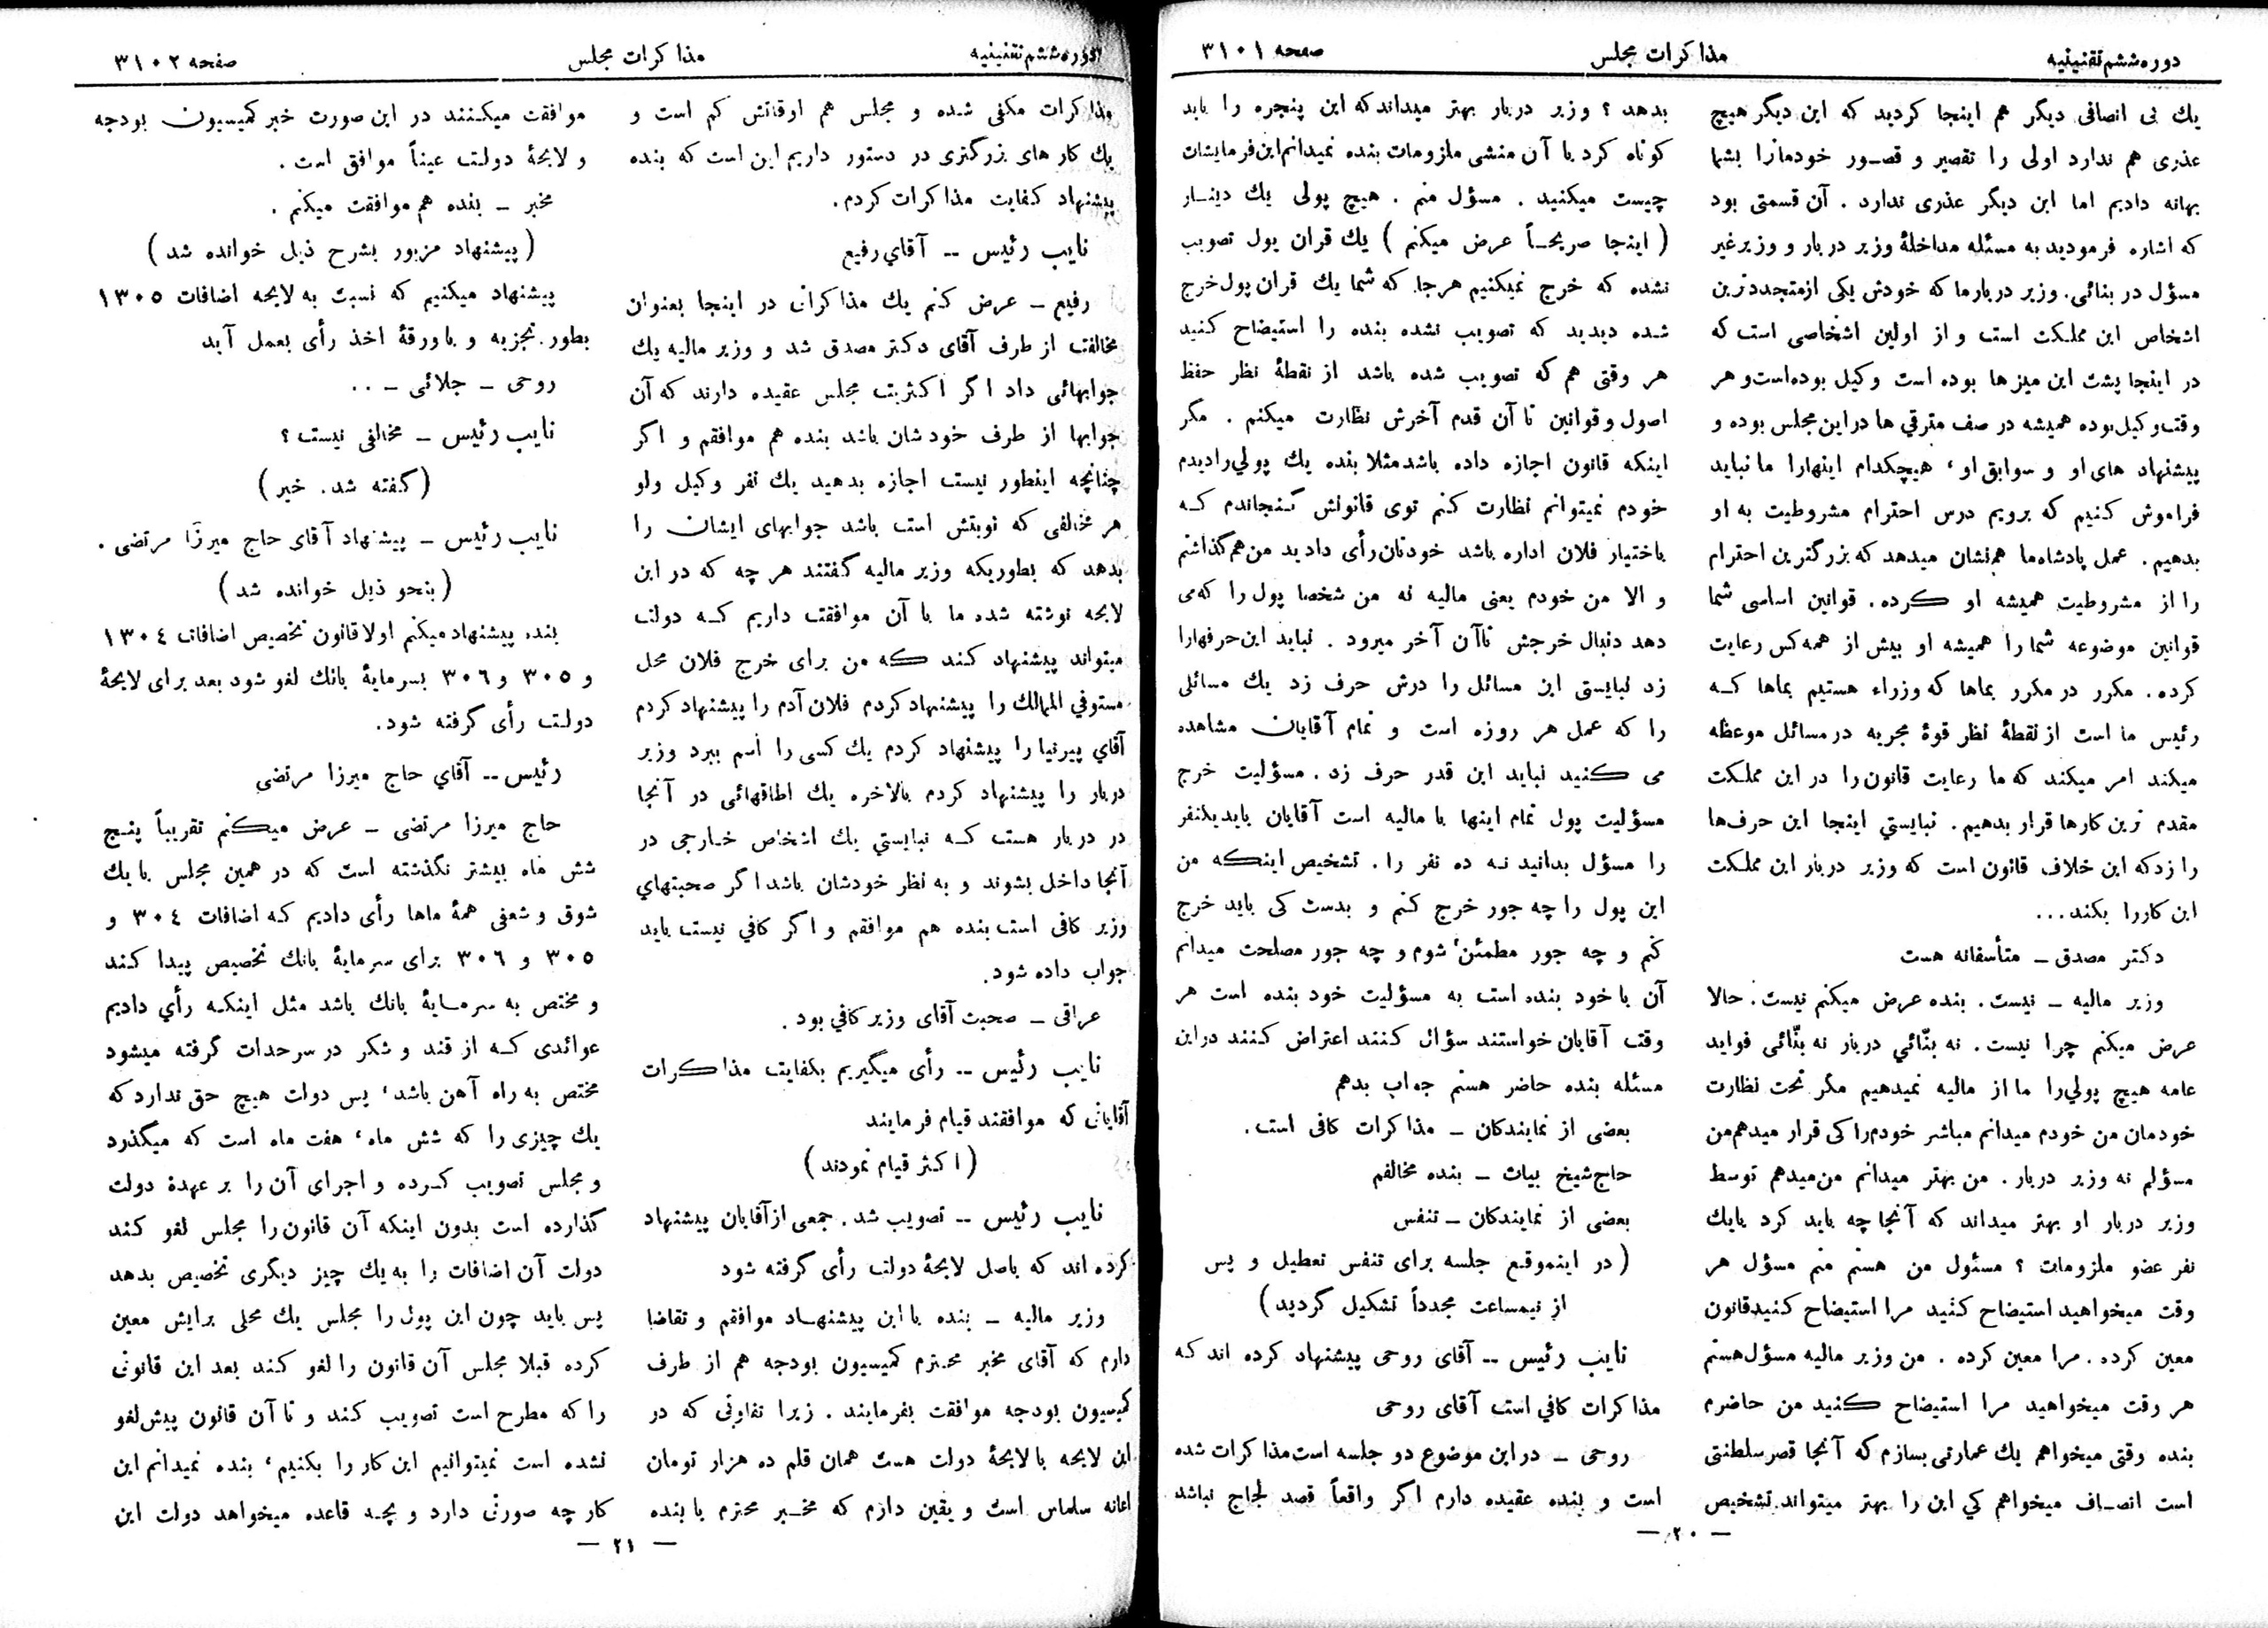 دوره ششم تقنینیه
مذاکرات مجلس
صفحه ۳۱۰۱
یك بی انصافی دیگر هم اینجا کردید که این دیگر هیچ
عذری هم ندارد اولی را تقصیر و قصور خودمانرا بشما
بهانه دادیم اما این دیگر عذری ندارد . آن قسمتی بود
که اشاره فرمودید به مسئله مداخلهٔ وزیر دربار و وزیر غیر
مسؤل در بنائی. وزیر دربار ما که خودش یکی از متجددترین
اشخاص این مملکت است و از اولین اشخاصی است که
در اینجا پشت این میزها بوده است وکیل بوده‌است و هر
وقت وکیل بوده همیشه در صف مترقی ها در این مجلس بوده و
پیشنهاد های او و سوابق او، هیچکدام اینهارا ما نباید
فراموش کنیم که برویم درس احترام مشروطیت به او
بدهیم . عمل پادشاه‌ما هم‌نشان میدهد که بزرگترین احترام
را از مشروطیت همیشه او کرده . قوانین اساسی شما
قوانین موضوعه شما را همیشه او بیش از همه کس رعایت
کرده . مکرر در مکرر بماها که وزراء هستیم بماها که
رئیس ما است از نقطهٔ نظر قوهٔ مجریه در مسائل موعظه
میکند امر میکند که ما رعایت قانون را در این مملکت
مقدم ترین کارها قرار بدهیم . نبایستي اینجا این حرف‌ها
را زد که این خلاف قانون است که وزیر دربار این مملکت
این کاررا بکند...
دکتر مصدق ــ متأسفانه هست
وزیر مالیه ــ نیست . بنده عرض میکنم نیست . حالا
عرض میکنم چرا نیست . نه بنّائي دربار نه بنّائی فواید
عامه هیچ پولي‌را ما از مالیه نمیدهیم مگر تحت نظارت
خودمان من خودم میدانم مباشر خودم‌را کی قرار میدهم‌من
مسؤلم نه وزیر دربار . من بهتر میدانم من‌میدهم توسط
وزیر دربار او بهتر میداند که آنجا چه باید کرد یا یك
نفر عضو ملزومات ؟ مسئول من هستم منم مسؤل هر
وقت میخواهید استیضاح کنید مرا استیضاح کنید قانون
معین کرده . مرا معین کرده . من وزیر مالیه مسؤل هستم
هر وقت میخواهید مرا استیضاح کنید من حاضرم
بنده وقتی میخواهم یك عمارتی بسازم که آنجا قصر سلطنتی
است انصاف میخواهم کي این را بهتر میتواند تشخیص
بدهد ؟ وزیر دربار بهتر میداند که این پنجره را باید
کوتاه کرد یا آن منشی ملزومات بنده نمیدانم این‌فرمایشات
چیست میکنید . مسؤل منم . هیچ پولی یك دینار
( اینجا صریحاً عرض میکنم ) یك قران پول تصویب
نشده که خرج نمیکنیم هرجا که شما یك قران پول خرج
شده دیدید که تصویب نشده بنده را استیضاح کنید
هر وقتی هم که تصویب شده باشد از نقطهٔ نظر حفظ
اصول و قوانین تا آن قدم آخرش نظارت میکنم . مگر
اینکه قانون اجازه داده باشد مثلا بنده یك پولي‌را دیدم
خودم نمیتوانم نظارت کنم توی قانونش گنجاندم که
باختیار فلان اداره باشد خودتان رأی دادید من هم گذاشتم
و الا من خودم یعنی مالیه نه من شخصا پول را که می
دهد دنبال خرجش تا آن آخر میرود . نباید این حرفهارا
زد نبایستی این مسائل را درش حرف زد یك مسائلی
را که عمل هر روزه است و تمام آقایان مشاهده
می کنید نباید این قدر حرف زد . مسؤلیت خرج
مسؤلیت پول تمام اینها با مالیه است آقایان باید یکنفر
را مسؤل بدانید نه ده نفر را . تشخیص اینکه من
این پول را چه جور خرج کنم و بدست کی باید خرج
کنم و چه جور مطمئن شوم و چه جور مصلحت میدانم
آن با خود بنده است به مسؤلیت خود بنده است هر
وقت آقایان خواستند سؤال کنند اعتراض کنند در این
مسئله بنده حاضر هستم جواب بدهم
بعضی از نمایندگان ــ مذاکرات کافی است .
حاج شیخ بیات ــ بنده مخالفم
بعضی از نمایندگان ــ تنفس
( در اینموقع جلسه برای تنفس تعطیل و پس
از نیمساعت مجدداً تشکیل گردید )
نایب رئیس ــ آقای روحی پیشنهاد کرده اند که
مذاکرات کافي است آقای روحی
روحی ــ در این موضوع دو جلسه است مذاکرات شده
است و بنده عقیده دارم اگر واقعاً قصد لجاج نباشد
ــ ۲۰ ــ
دوره ششم تقنینیه
مذاکرات مجلس
صفحه ۳۱۰۲
مذاکرات مکفی شده و مجلس هم اوقاتش کم است و
یك کار های بزرگتری در دستور داریم این است که بنده
پیشنهاد کفایت مذاکرات کردم .
نایب رئیس ــ آقاي رفیع
رفیع ــ عرض کنم یك مذاکراتی در اینجا بعنوان
مخالفت از طرف آقای دکتر مصدق شد و وزیر مالیه یك
جوابهائی داد اگر اکثریت مجلس عقیده دارند که آن
جوابها از طرف خودشان باشد بنده هم موافقم و اگر
چنانچه اینطور نیست اجازه بدهید یك نفر وکیل ولو
هر مخالفی که نوبتش است باشد جوابهای ایشان را
بدهد که بطوریکه وزیر مالیه گفتند هر چه که در این
لایحه نوشته شده ما با آن موافقت داریم که دولت
میتواند پیشنهاد کند که من برای خرج فلان محل
مستوفي الممالك را پیشنهاد کردم فلان آدم را پیشنهاد کردم
آقاي پیرنیا را پیشنهاد کردم یك کسی را اسم ببرد وزیر
دربار را پیشنهاد کردم بالاخره یك اطاقهائی در آنجا
در دربار هست که نبایستي یك اشخاص خارجی در
آنجا داخل بشوند و به نظر خودشان باشد اگر صحبتهاي
وزیر کافی است بنده هم موافقم و اگر کافي نیست باید
جواب داده شود.
عراقی ــ صحبت آقای وزیر کافي بود .
نایب رئیس ــ رأی میگیریم بکفایت مذاکرات
آقایانی که موافقند قیام فرمایند
( اکثر قیام نمودند )
نایب رئیس ــ تصویب شد . جمعی از آقایان پیشنهاد
کرده اند که باصل لایحهٔ دولت رأی گرفته شود
وزیر مالیه ــ بنده با این پیشنهاد موافقم و تقاضا
دارم که آقای مخبر محترم کمیسیون بودجه هم از طرف
کمیسیون بودجه موافقت بفرمایند . زیرا تفاوتی که در
این لایحه با لایحهٔ دولت هست همان قلم ده هزار تومان
اعانه سلماس است و یقین دارم که مخبر محترم با بنده
موافقت میکنند در این صورت خبر کمیسیون بودجه
و لایحهٔ دولت عیناً موافق است .
مخبر ــ بنده هم موافقت میکنم .
( پیشنهاد مزبور بشرح ذیل خوانده شد )
پیشنهاد میکنیم که نسبت به لایحه اضافات ۱۳۰۵
بطور تجزیه و با ورقهٔ اخذ رأی بعمل آید
روحی ــ جلائی ــ . .
نایب رئیس ــ مخالفی نیست ؟
( گفته شد . خیر )
نایب رئیس ــ پیشنهاد آقای حاج میرزا مرتضی .
( بنحو ذیل خوانده شد )
بنده پیشنهاد میکنم اولا قانون تخصیص اضافات ۱۳۰٤
و ۳۰۵ و ۳۰٦ بسرمایهٔ بانك لغو شود بعد برای لایحهٔ
دولت رأی گرفته شود.
رئیس ــ آقاي حاج میرزا مرتضی
حاج میرزا مرتضی ــ عرض میکنم تقریباً پنج
شش ماه بیشتر نگذشته است که در همین مجلس با یك
شوق و شعفی همهٔ ماها رأی دادیم که اضافات ۳۰٤ و
۳۰۵ و ۳۰٦ برای سرمایهٔ بانك تخصیص پیدا کند
و مختص به سرمایهٔ بانك باشد مثل اینکه رأي دادیم
عوائدی که از قند و شکر در سرحدات گرفته میشود
مختص به راه آهن باشد، پس دولت هیچ حق ندارد که
یك چیزی را که شش ماه، هفت ماه است که میگذرد
و مجلس تصویب کرده و اجرای آن را بر عهدهٔ دولت
گذارده است بدون اینکه آن قانون را مجلس لغو کند
دولت آن اضافات را به یك چیز دیگری تخصیص بدهد
پس باید چون این پول را مجلس یك محلی برایش معین
کرده قبلا مجلس آن قانون را لغو کند بعد این قانونی
را که مطرح است تصویب کند و تا آن قانون پیش لغو
نشده است نمیتوانیم این کار را بکنیم، بنده نمیدانم این
کار چه صورتی دارد و بچه قاعده میخواهد دولت این
ــ ۲۱ ــ